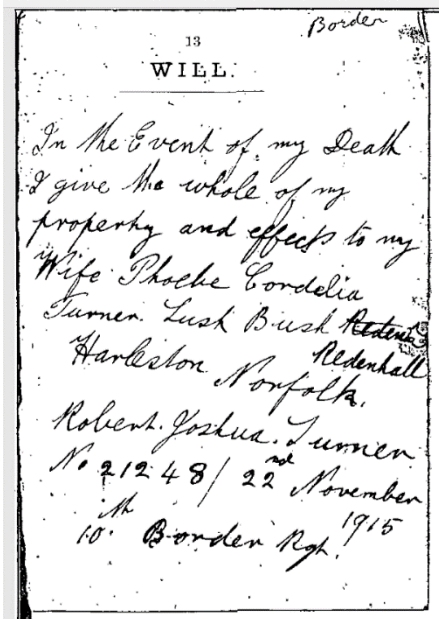 Border
13
WILL.
In the Event of my Death
I give the whole of my
property and effects to my
Wife Phoebe Cordelia
Turner. Lush Bush
Redenhall
Harleston Norfolk.
Robert. Joshua. Turner
No 21248/22nd November
1915
10th Border Rgt.